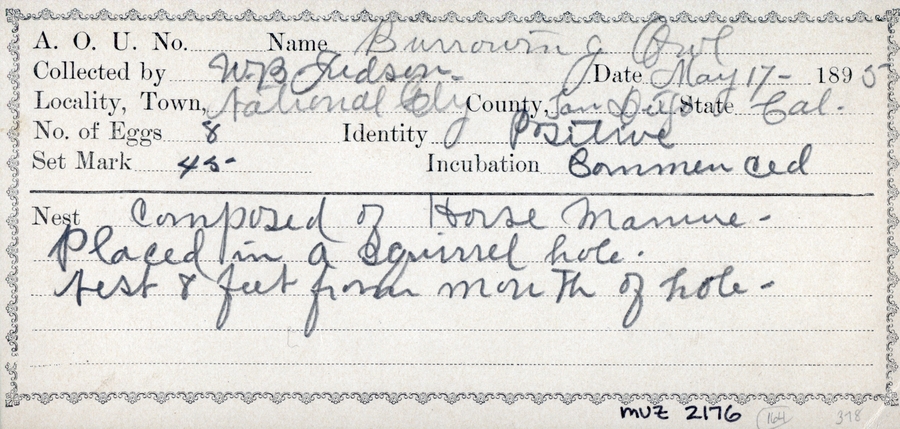 A. O. U. No. Name Burrowing Owl
Collected by W.B. Judson. Date May 17- 1895
Locality, Town, National City County, San Diego State Cal.
No. of Eggs 8 Identity Positive
Set Mark 45- Incubation Commenced
Nest Composed of Horse Manure-
Placed in a squirrel hole.
Nest 8 feet from mouth of hole-
MVZ 2176 164 378